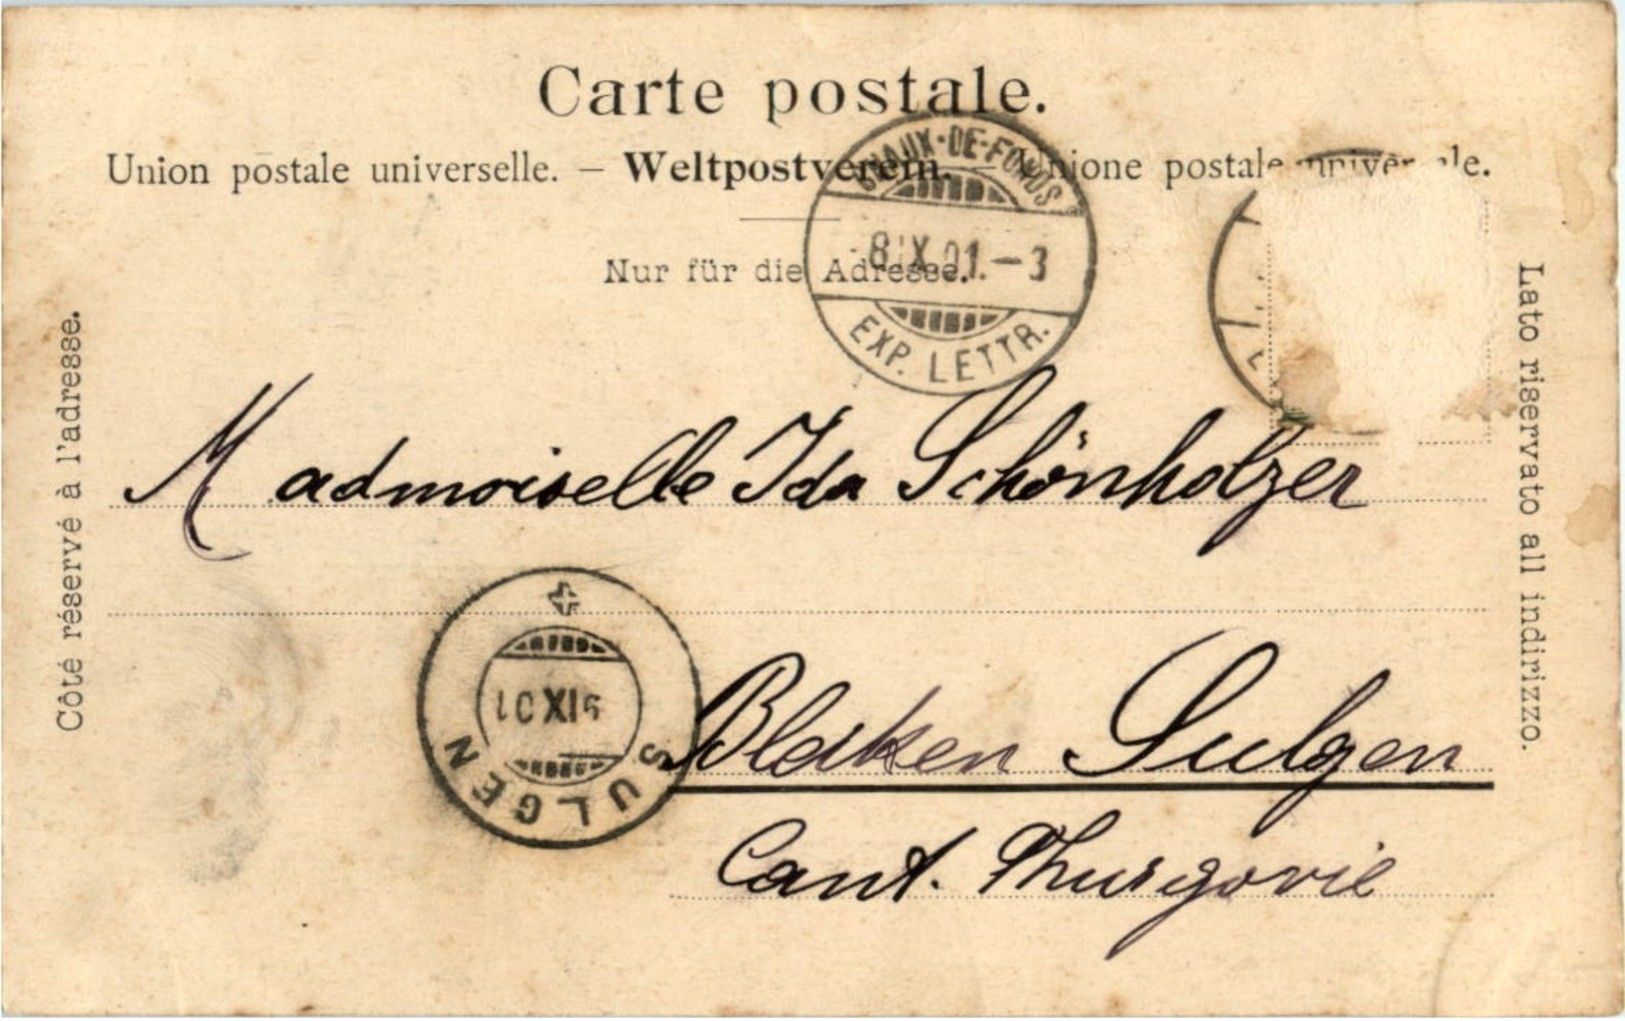 Carte postale.
Union postale universelle. — Weltpostverein. — Unione postale universale.
Nur für die Adresse.
CHAUX-DE-FONDS
8 IX 01. — 3
EXP. LETTR.
Côté réservé à l'adresse.
Lato riservato all indirizzo.
Madmoiselle Ida Schönholzer
SULGEN
9 IX 01
Bleiken Sulgen
Cant. Thurgovie